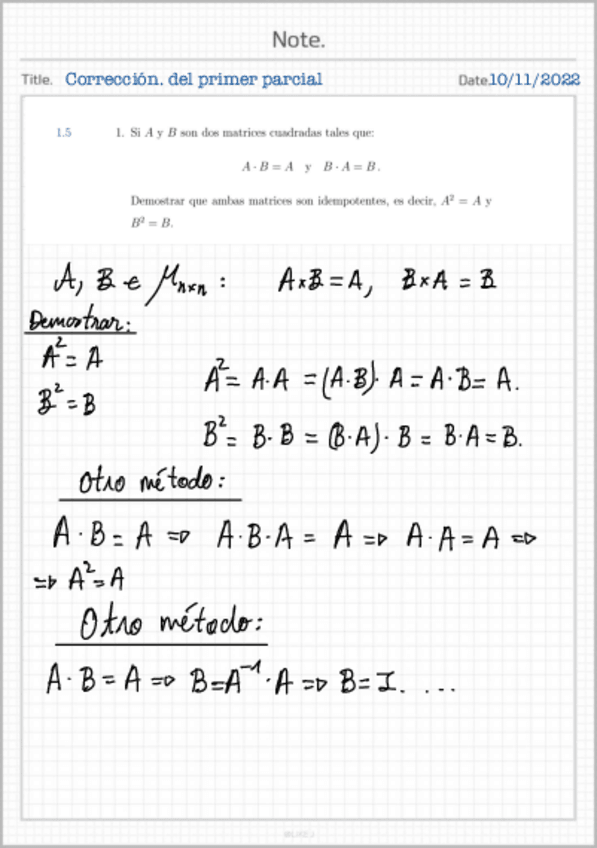 Note.
Title. Corrección. del primer parcial Date.10/11/2022
1.5 1. Si A y B son dos matrices cuadradas tales que:
A · B = A y B · A = B.
Demostrar que ambas matrices son idempotentes, es decir, A² = A y
B² = B.
A, B ∈ M_{n×n} : A×B = A, B×A = B
Demostrar:
A² = A
A² = A·A = (A·B)·A = A·B = A.
B² = B
B² = B·B = (B·A)·B = B·A = B.
Otro método:
A·B = A ⇒ A·B·A = A ⇒ A·A = A ⇒
⇒ A² = A
Otro método:
A·B = A ⇒ B = A⁻¹·A ⇒ B = I. ...